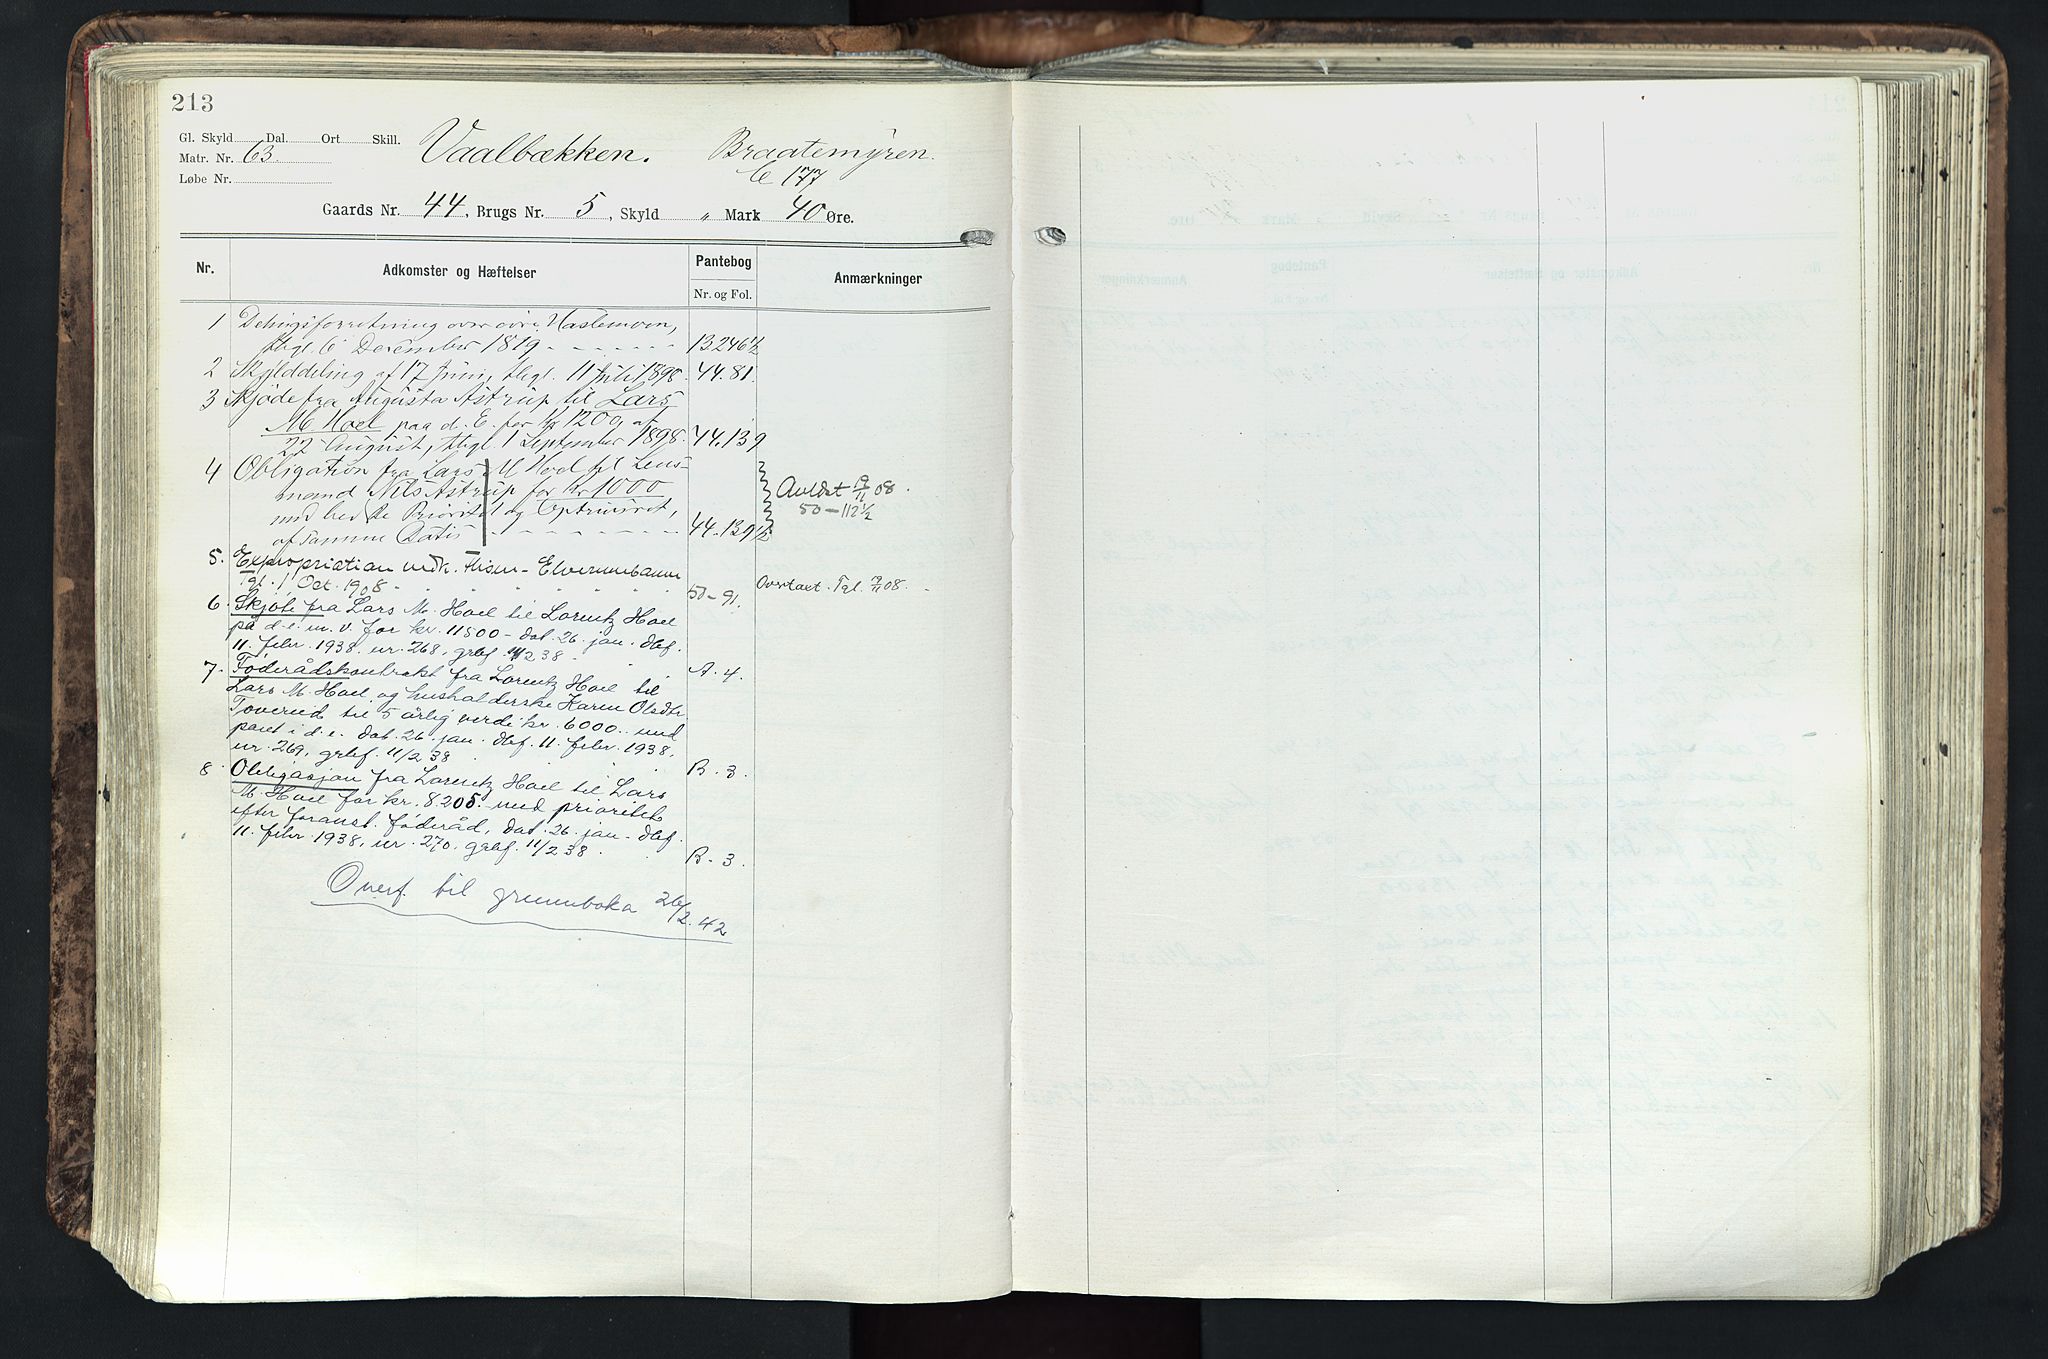 213
Gl. Skyld Dal. Ort Skill.
Matr. Nr. 63.
Løbe Nr.
Vaalbækken. Braatemyren.
C 177
Gaards Nr. 44, Brugs Nr. 5, Skyld " Mark 40 Øre.
Nr. Adkomster og Hæftelser Pantebog Anmærkninger
Nr. og Fol.
1 Delingsforretning over øvre Haslemoen,
thgl. 6 December 1819 - - - - - - 13.246½
2 Skylddeling af 17 Juni, thgl. 11 Juli 1898. 44.81.
3 Skjøde fra Augusta Astrup til Lars
M Hoel paa d. E. for Kr 1200, af
22 August, thgl 1 September 1898. 44.139
4 Obligation fra Lars M Hoel til Lens-
mand Nils Astrup for Kr 1000
med bedste Prioritet og Opkrævret,
af samme Datis - - - - - - 44.139½
Avldst 19/11 08.
50-112½
5. Expropriation vedk. Flisen-Elverumbanen
Tgl. 1 Oct. 1908 " " " " " 50-91.
Overtaet. Tgl. 19/11 08.
6. Skjöte fra Lars M. Hoel til Lorentz Hoel
på d.e. m. v. for kr. 11500 - dat. 26. jan. dbf.
11. febr. 1938. nr. 268, grbf. 11/2 38. A. 4.
7. Føderådskontrakt fra Lorentz Hoel til
Lars M. Hoel og husholderske Karen Olsdtr.
Toverud til 5 årlig verdi kr. 6000.. med
pant i d. e. dat. 26. jan. dbf. 11. febr. 1938,
nr. 269, grbf. 11/2 38 B. 3.
8. Obligasjon fra Lorentz Hoel til Lars
M. Hoel for kr. 8.205.- med prioritet
efter foranst. föderåd, dat. 26. jan. dbf.
11. febr. 1938, nr. 270. grbf. 11/2 38. B. 3.
Overf. til grunnboka 26/2.42